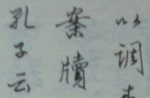 以调
案牘
孔子云